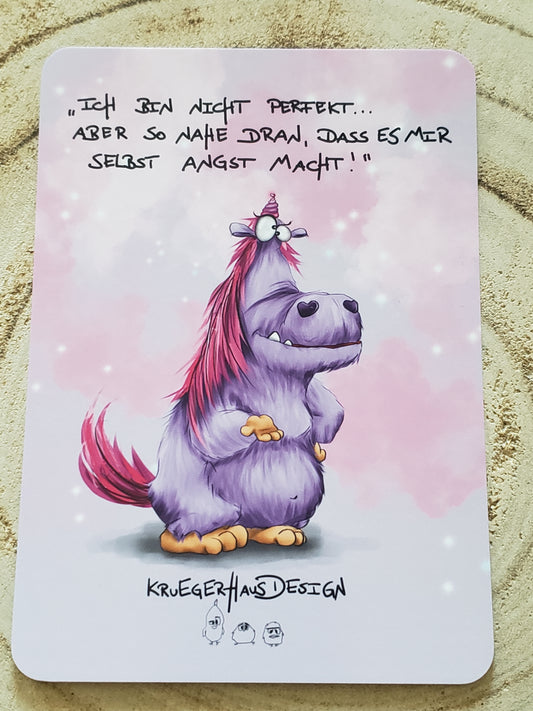 „ICH BIN NICHT PERFEKT...
ABER SO NAHE DRAN, DASS ES MIR
SELBST ANGST MACHT!"
KRUEGERHAUSDESIGN